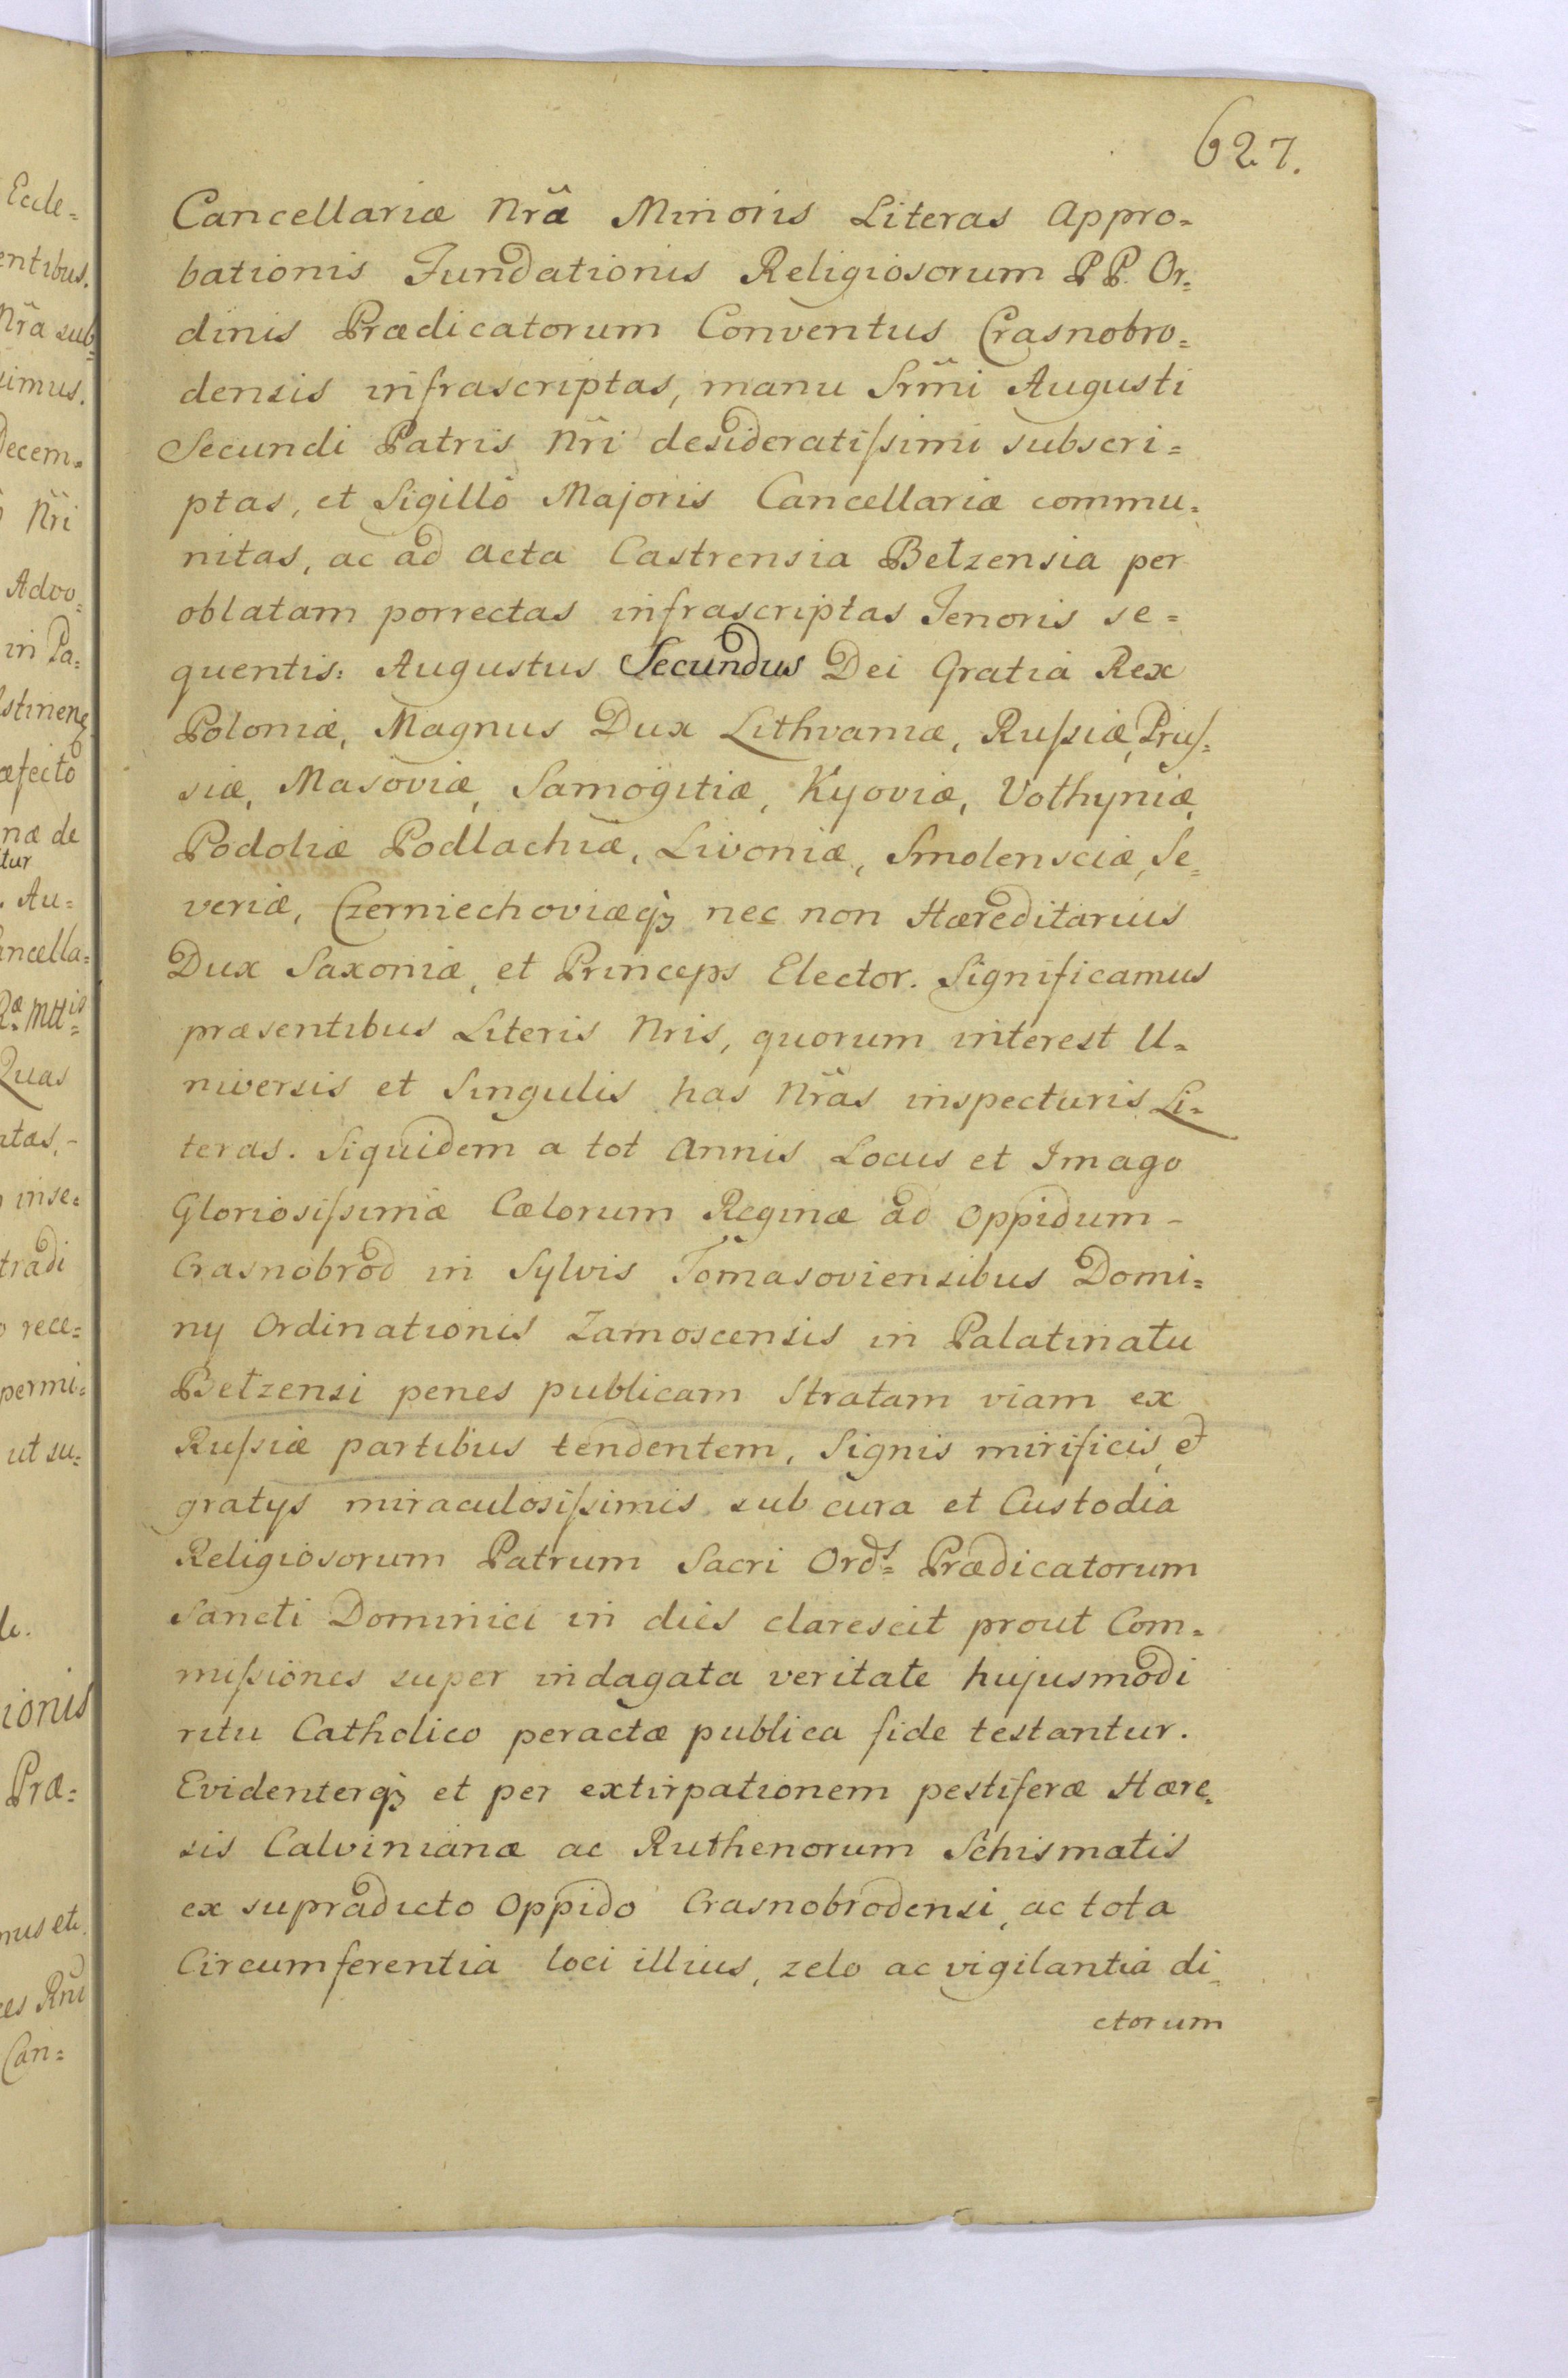 627.
Cancellariæ Nrã Minoris Literas Appro=
bationis Fundationis Religiosorum P P. Or=
dinis Prædicatorum Conventus Crasnobro=
densis infrascriptas, manu Srm̃i Augusti
Secundi Patris Nr̃i desideratiſsimi subscri=
ptas, et Sigillô Majoris Cancellariæ commu=
nitas, ac ad Acta Castrensia Betzensia per
oblatam porrectas infrascriptas Tenoris se=
quentis: Augustus Secundus Dei Gratiâ Rex
Poloniæ, Magnus Dux Lithvaniæ, Ruſsiæ, Pruſ=
siæ, Masoviæ, Samogitiæ, Kyoviæ, Volhyniæ,
Podoliæ Podlachiæ, Livoniæ, Smolensciæ, Se=
veriæ, Czerniechoviæqȝ nec non Hæreditarius
Dux Saxoniæ, et Princeps Elector. Significamus
præsentibus Literis Nris, quorum interest U=
niversis et Singulis has Nr̃as inspecturis Li=
teras. Siquidem a tot Annis Locus et Imago
Gloriosiſsimæ Cælorum Reginæ ad Oppidum -
Crasnobrod in Sylvis Tomasoviensibus Domi=
ny Ordinationis Zamoscensis in Palatinatu
Betzensi penes publicam Stratam viam ex
Ruſsiæ partibus tendentem, Signis mirificis, et
gratys miraculosiſsimis sub cura et Custodia
Religiosorum Patrum Sacri Ord.s Prædicatorum
Sancti Dominici in dies clarescit prout Com=
miſsiones super indagata veritate hujusmodi
ritu Catholico peractæ publica fide testantur.
Evidenterqȝ et per extirpationem pestiferæ Hære=
sis Calvinianæ ac Ruthenorum Schismatis
ex supradicto Oppido Crasnobrodensi, ac tota
Circumferentia loci illius, zelo ac vigilantiâ di=
ctorum